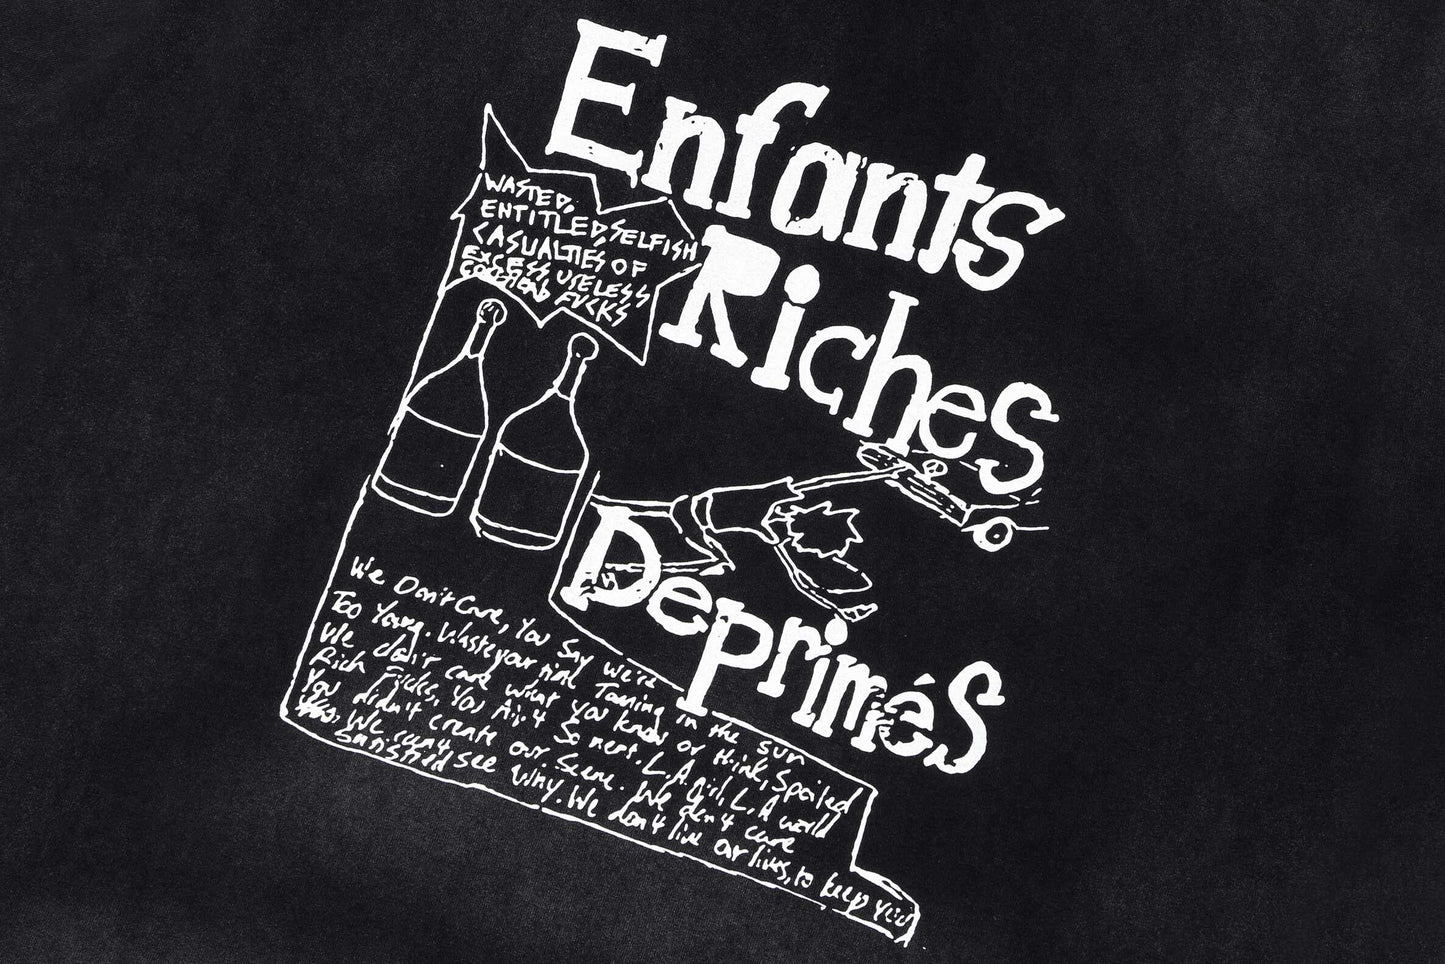 Enfants
Riches
Déprimés
WASTED,
ENTITLED, SELFISH
CASUALTIES OF
EXCESS, USELESS
FUCKS
We Don't Care, You Say We're
Too Young. Waste your time Tanning in the sun
We don't care what you know or think, Spoiled
Rich Fucks, You Ain't So neat. L.A. girl, L.A world
You didn't create our Scene. We don't care
We can't see why. We don't live our lives, to keep you
Satisfied